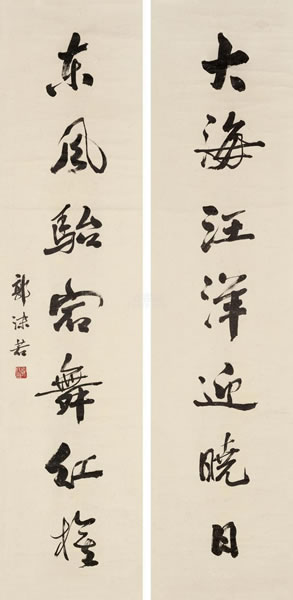 大海汪洋迎曉日
东风駘宕舞红旌
郭沫若